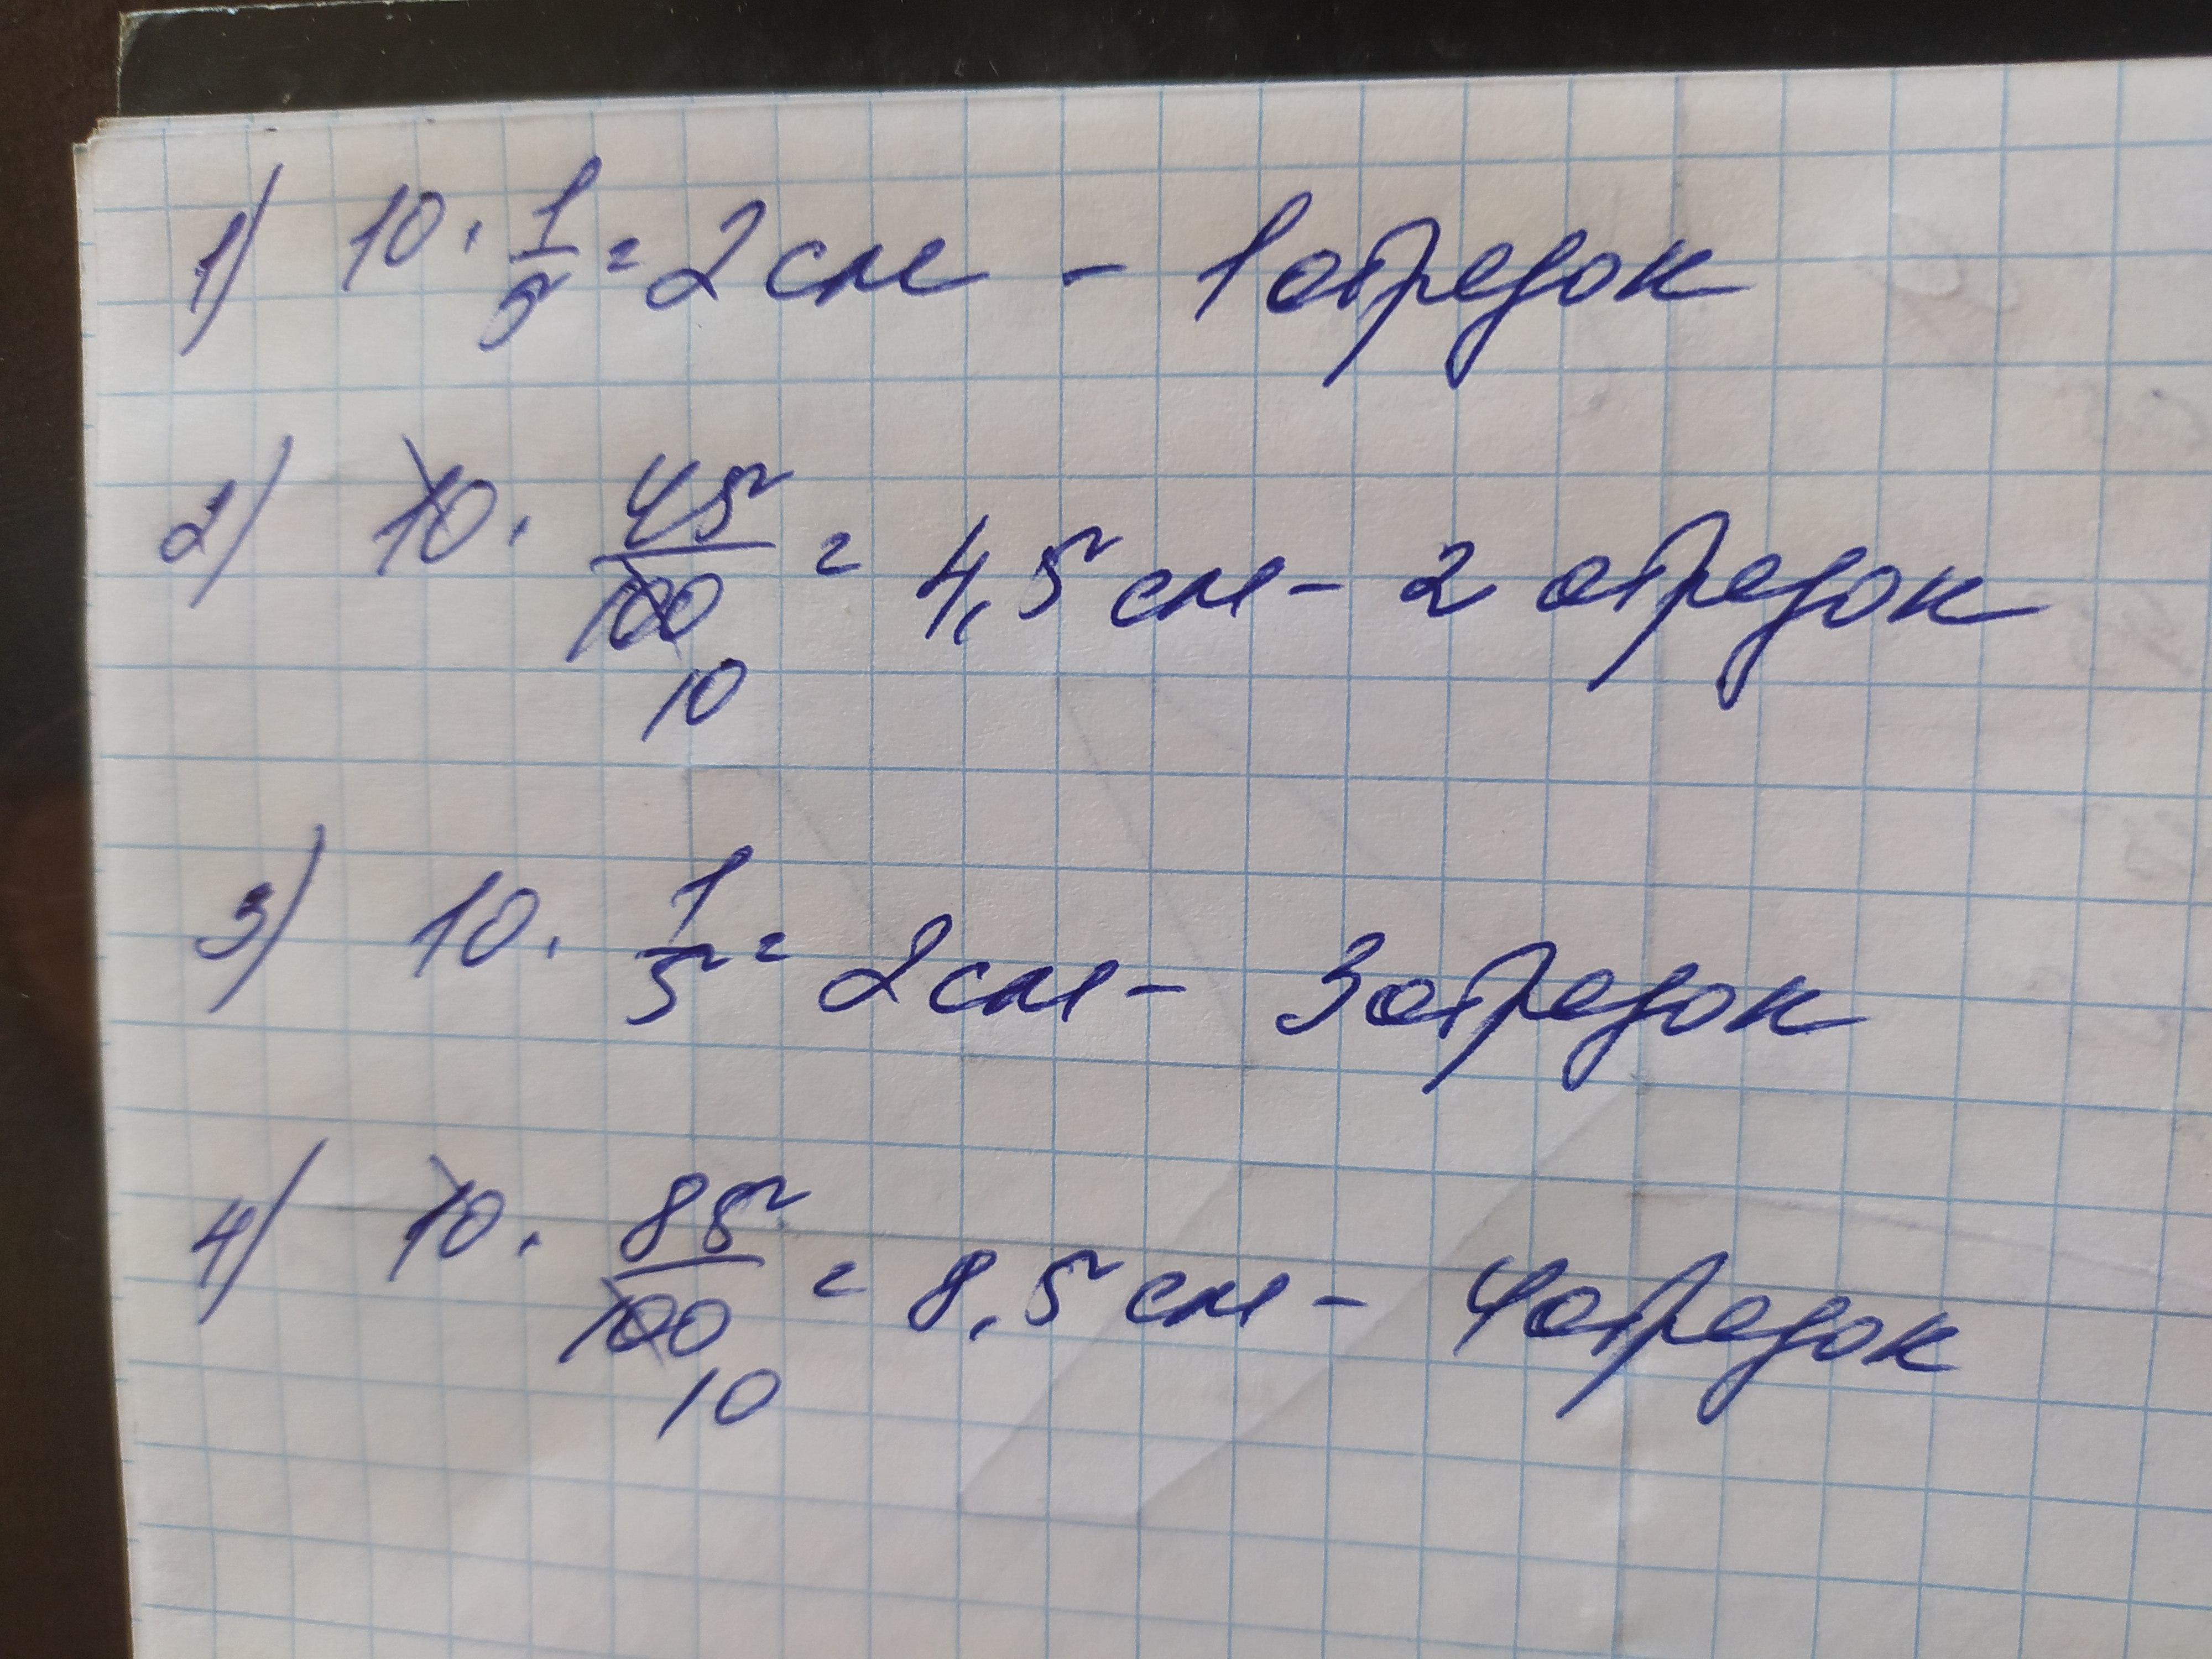 1) 10 · 1/5 = 2 см - 1 отрезок
2) 10 · 45/100 = 4,5 см - 2 отрезок
10
3) 10 · 1/5 = 2 см - 3 отрезок
4) 10 · 85/100 = 8,5 см - 4 отрезок
10